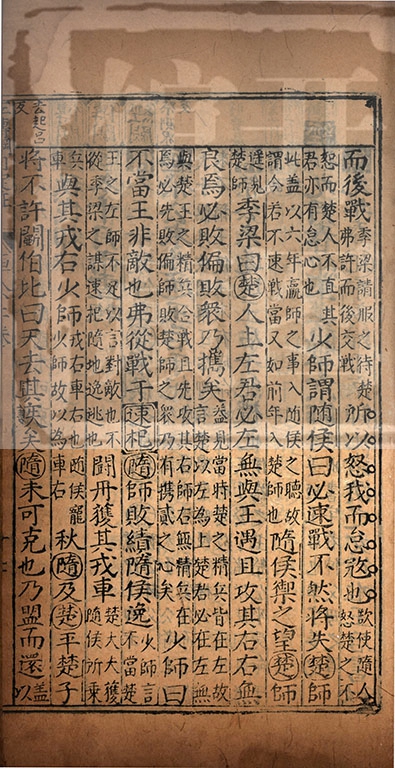 而後戰季梁請服之待楚弗許而後交戰所以怒我而怠寇也欲使隨人怒楚之不
恕而楚人不直其君亦有怠心也少師謂隨侯曰必速戰不然將失楚師
此盖以六年羸師之事入隨侯之聽故謂今若不速戰當又如前年入楚師也隨侯禦之望楚師
遥見楚師季梁曰楚人上左君必左無與王遇且攻其右右無
良焉必敗偏敗衆乃攜矣盖見當時楚之精兵皆在左故言楚以左為上楚君必在左無
與楚王之精兵合戰且先攻其右師右無精兵在焉必先敗偏師敗楚師之衆乃有攜貳之心矣少師曰
不當王非敵也弗從戰于速杞隨師敗績隨侯逸少師言不當楚
王之左師不足以言對敵也不從季梁之謀速杞隨地逸逃也鬬丹獲其戎車楚大夫獲隨侯所乘
兵車與其戎右少師戎右車右也隨侯寵少師故以為車右秋隨及楚平楚子
去起呂反
將不許鬬伯比曰天去其疾矣隨未可克也乃盟而還盖以